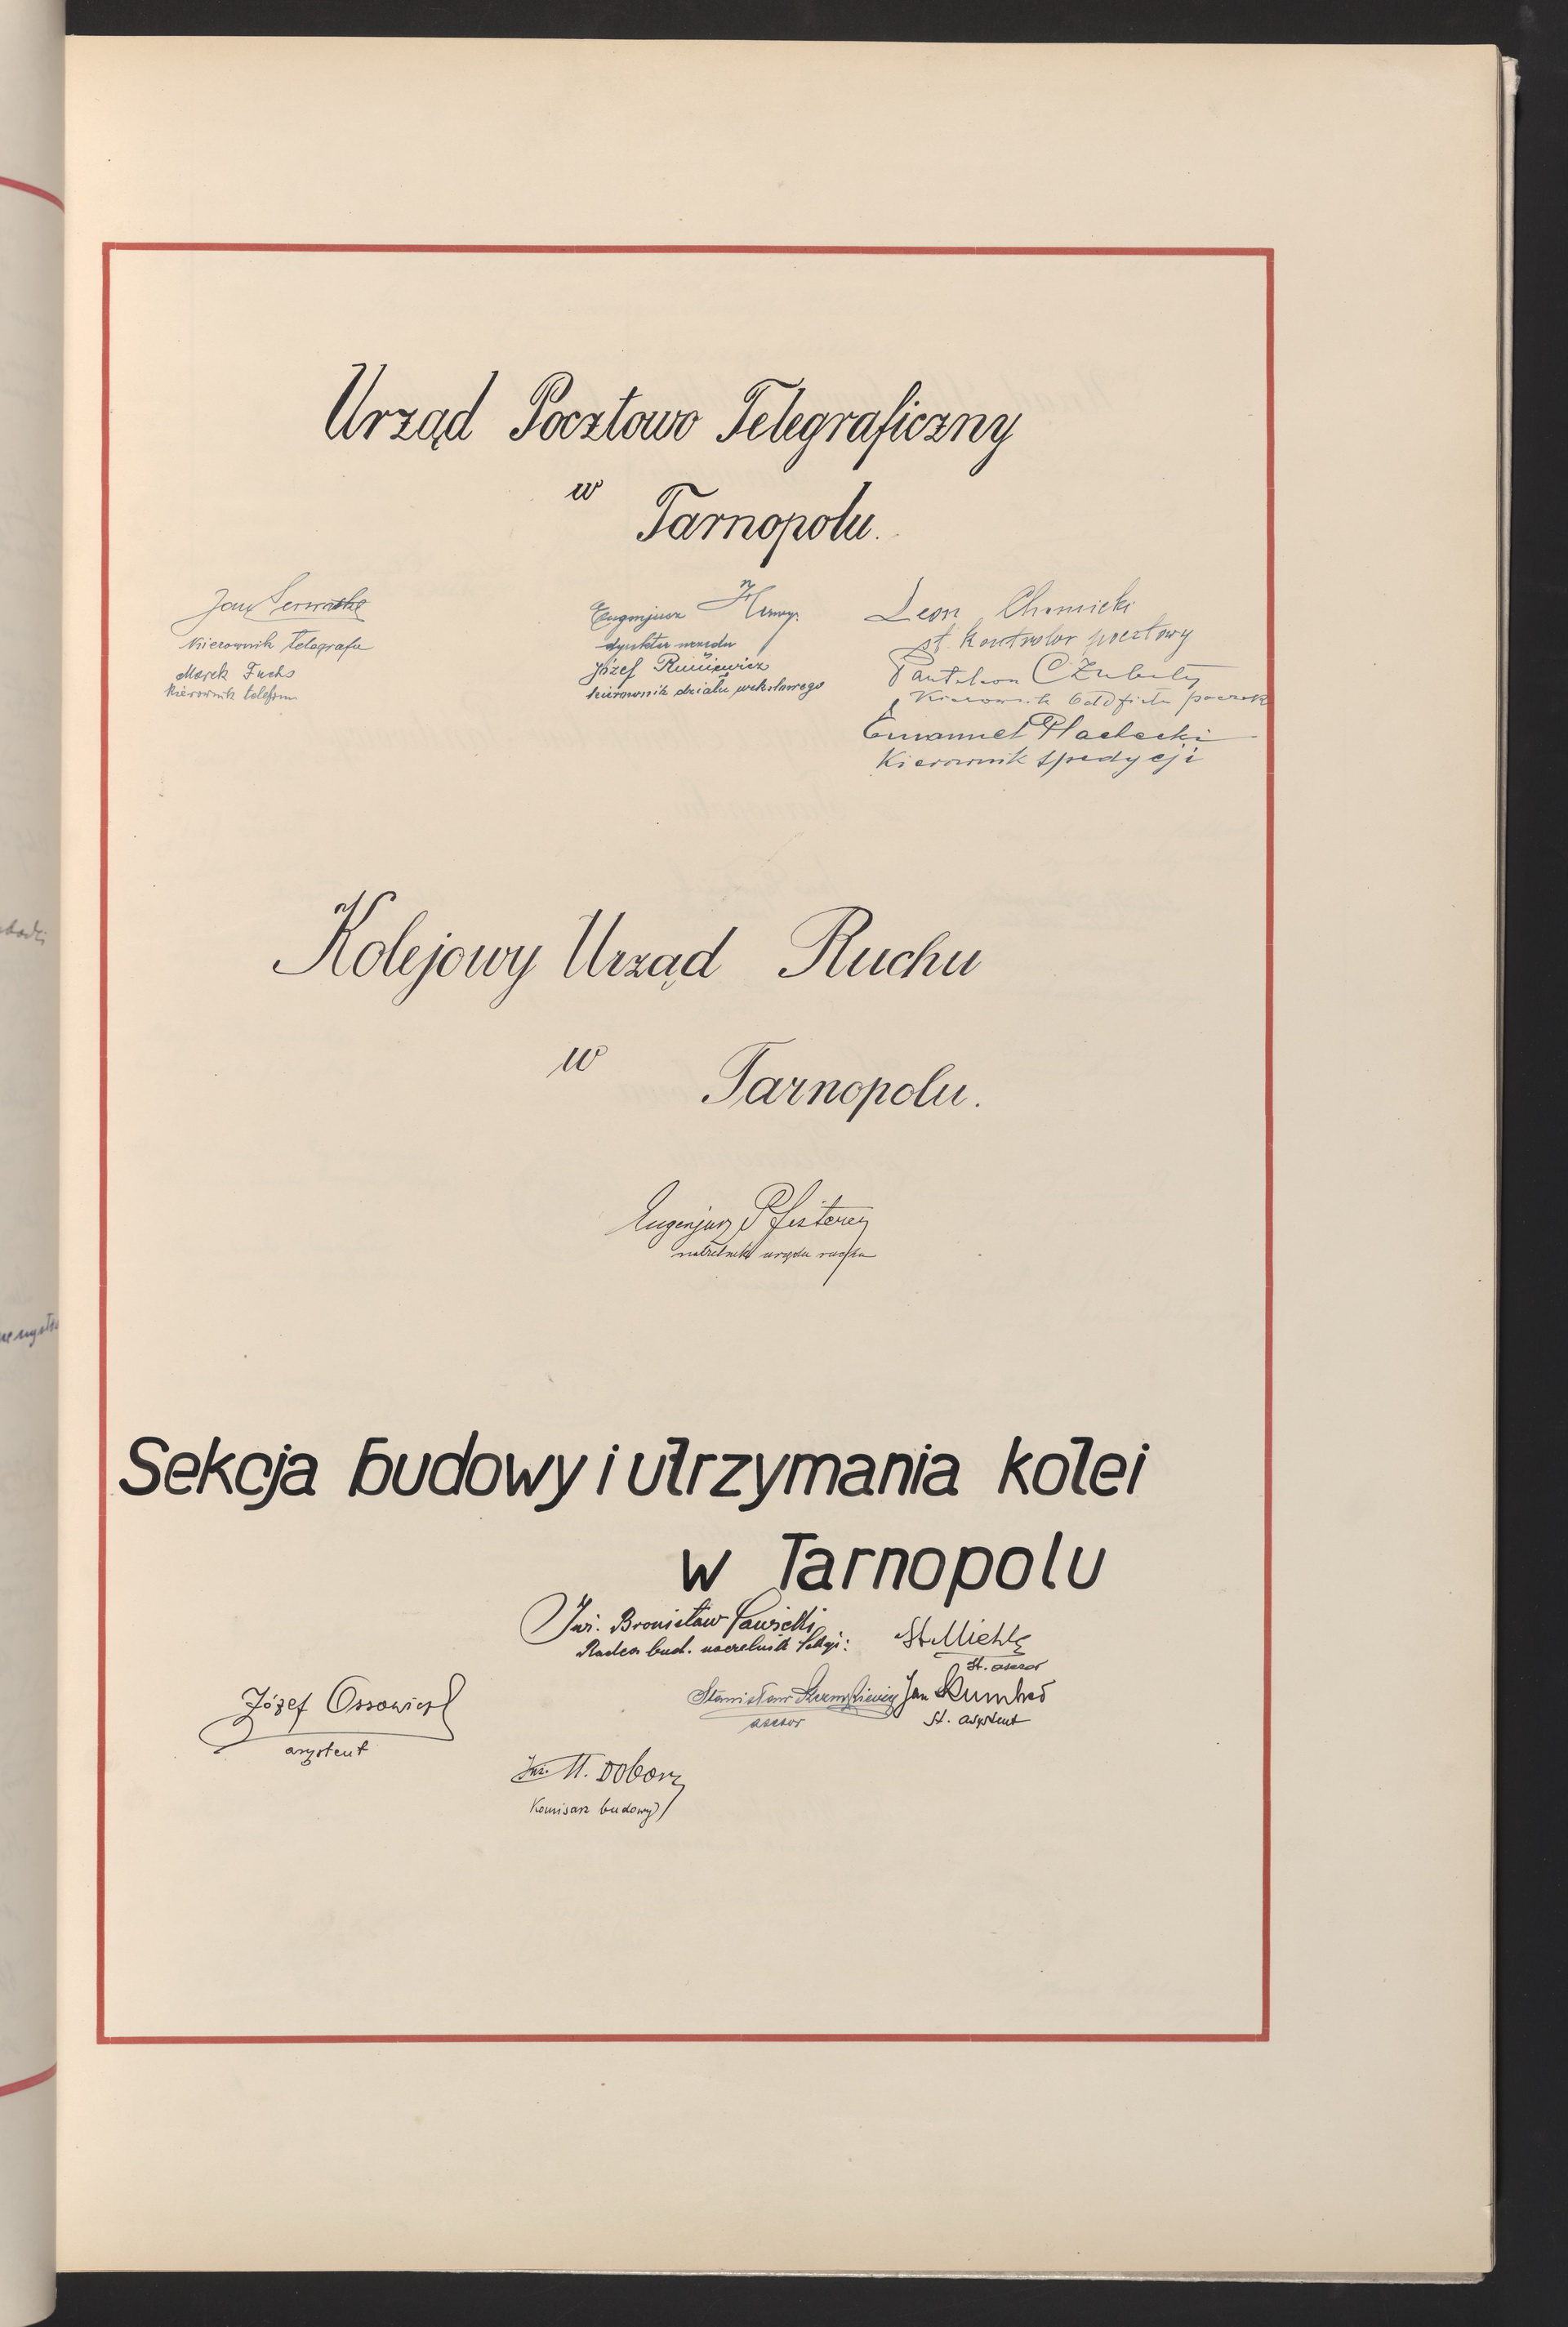 Urząd Pocztowo Telegraficzny
w
Tarnopolu.
Jan
Kierownik telegrafu
Marek Fuchs
kierownik telefonu
Eugenjusz
dyrektor urzędu
Józef
kierownik działu wekslowego
Leon Chomicki
st. kontrolor pocztowy
Pantaleon Czubaty
Kierownik paczek
Emanuel Plachecki
Kierownik spedycji
Kolejowy Urząd Ruchu
w
Tarnopolu.
Eugenjusz Pfisterer
naczelnik urzędu ruchu
Sekcja budowy i utrzymania kolei
w Tarnopolu
Inż. Bronisław Sawicki
Radca bud. naczelnik Sekcji:
St. Miehle
st. asesor
Stanisław
asesor
Jan
st. asystent
Józef Ossowicz
asystent
Inż. M.
Komisarz budowy